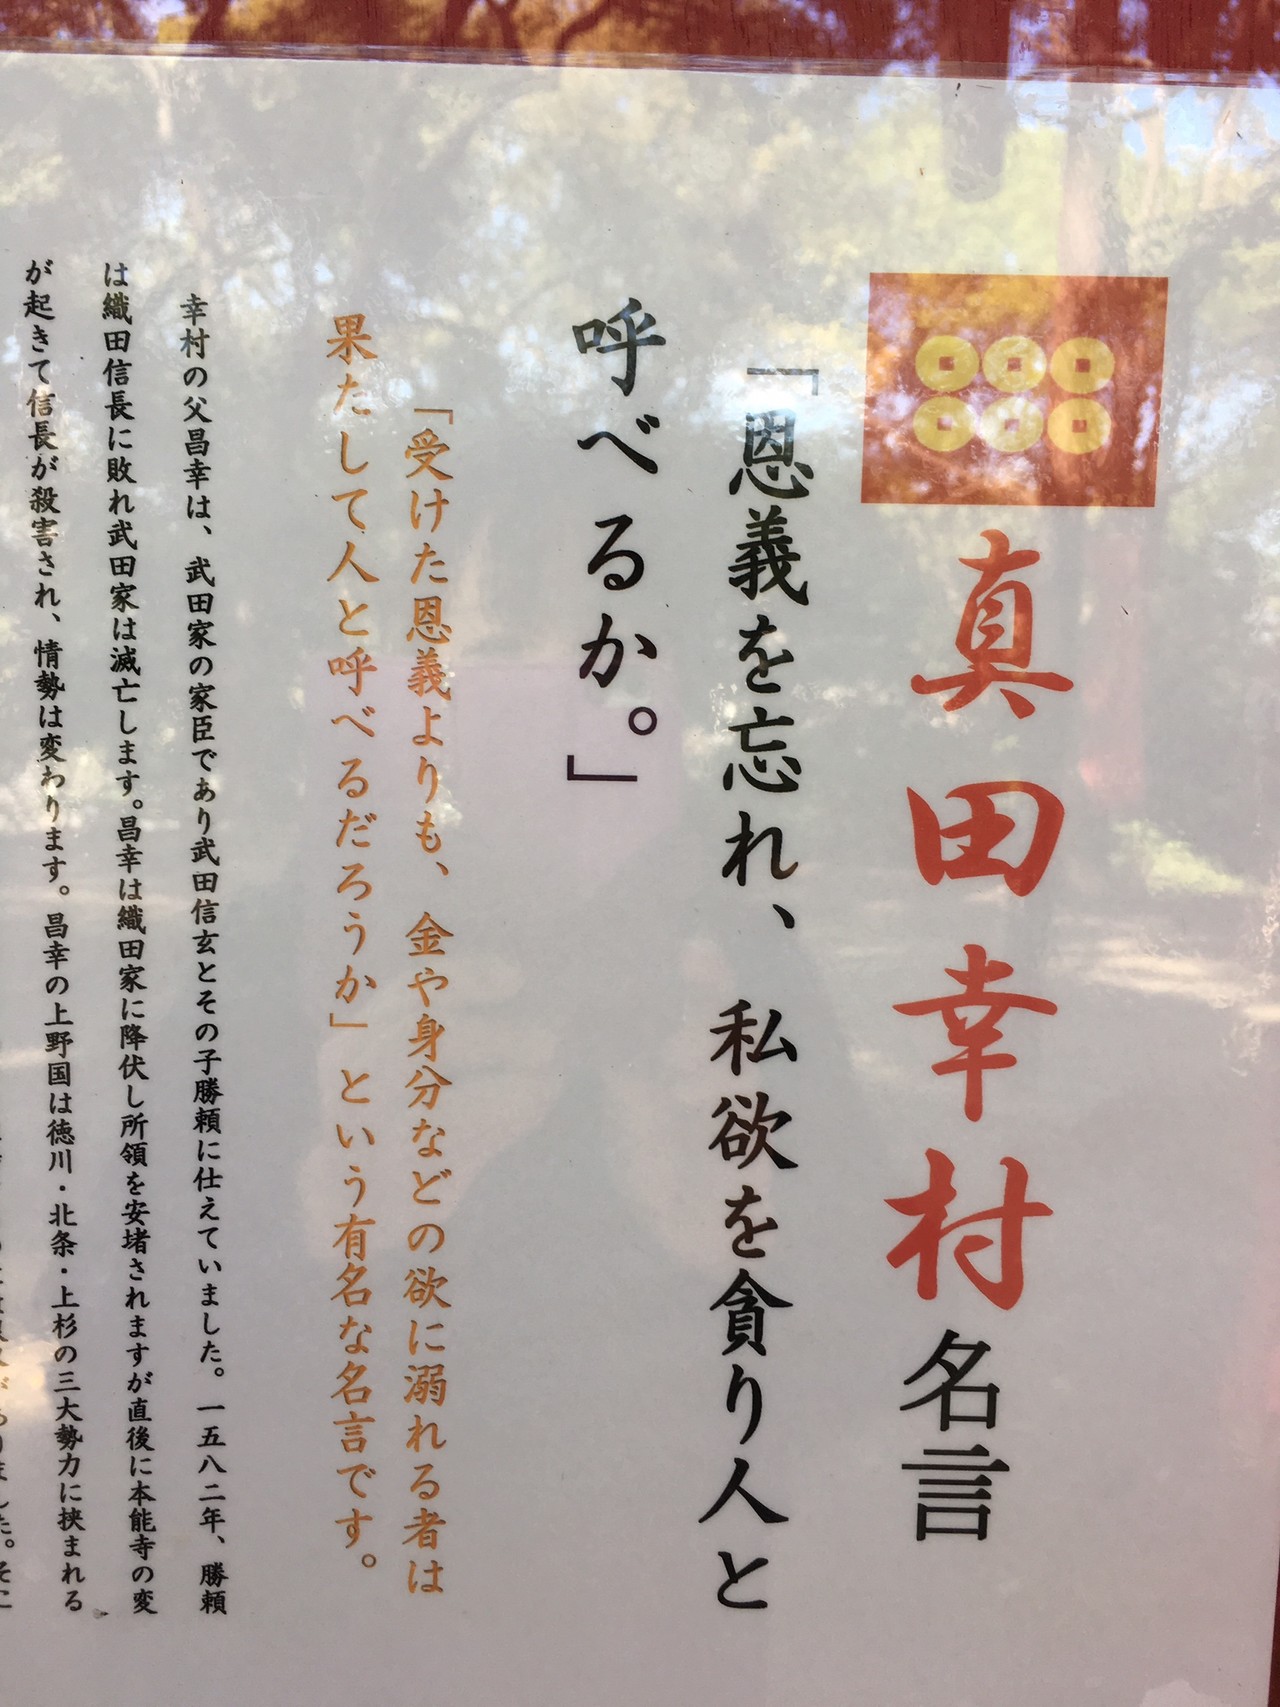 真田幸村名言
「恩義を忘れ、私欲を貪り人と
呼べるか。」
「受けた恩義よりも、金や身分などの欲に溺れる者は
果たして人と呼べるだろうか」という有名な名言です。
幸村の父昌幸は、武田家の家臣であり武田信玄とその子勝頼に仕えていました。一五八二年、勝頼
は織田信長に敗れ武田家は滅亡します。昌幸は織田家に降伏し所領を安堵されますが直後に本能寺の変
が起きて信長が殺害され、情勢は変わります。昌幸の上野国は徳川・北条・上杉の三大勢力に挟まれる